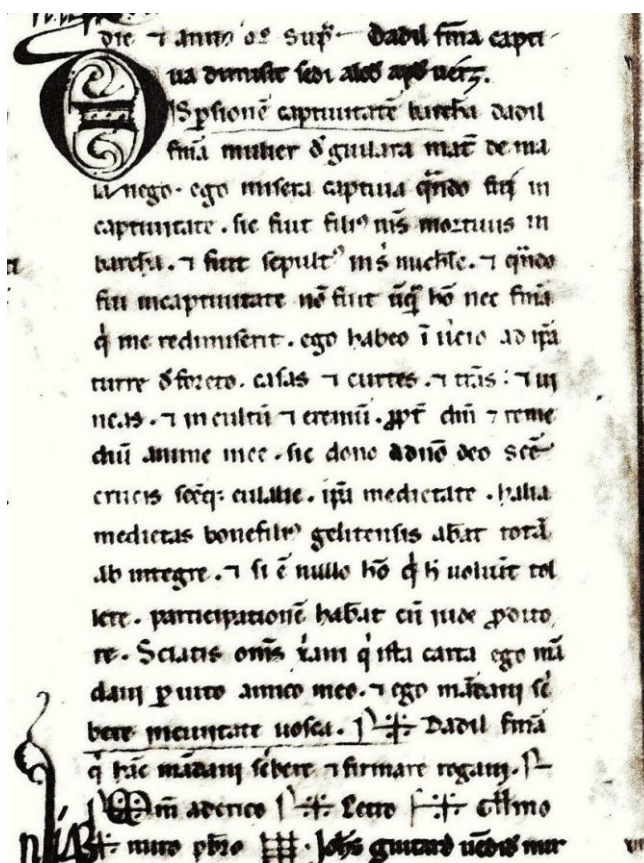 die ⁊ anno q̊ sup̃ Dadil fm̃a capti
ua dimisit sedi alod apd uerz̃.
OSp̱sionẽ captiuitatẽ barcħa dadil
fm̃a mulier đ guilara mat̃ de ma
la nego. ego misera captiua qñdo fui in
captiuitate. sic fiut filiꝰ ms̃ mortuus in
barcħa. ⁊ fiut sepultꝰ ms̃ nuchłe. ⁊ qñdo
fiu incaptiuitate nõ fiut ũq̃ hõ nec fm̃a
q̇ me redimiserit. ego habeo ĩ uicio ad ip̃a
turre đ foreto. casas ⁊ curtes. ⁊ tr̃as: ⁊ ui
neas. ⁊ in cultũ ⁊ eremũ. ꝓpt̃ dm̃ ⁊ reme
diũ anime mee. sic dono adnõ deo scẽ
crucis scẽq; eulalie. ip̃a medietate. halia
medietas bonefiliꝰ gelitensis abat totã
ab integre. ⁊ si ẽ nullo hõ q̇ h uoluit tol
lere. participationẽ hab̃at cũ iude ꝓdito
re. Sciatis om̃s x̃ani q̇ ista carta ego mã
daui ꝑ uito amico meo. ⁊ ego mãdaui sc̃
bere inciuitate uosca. Dadil fm̃a
q̇ hãc mãdaui sc̃bere ⁊ firmare rogaui.
aderico Lecto Głłmo
miro pb̃ro Joħs guitard